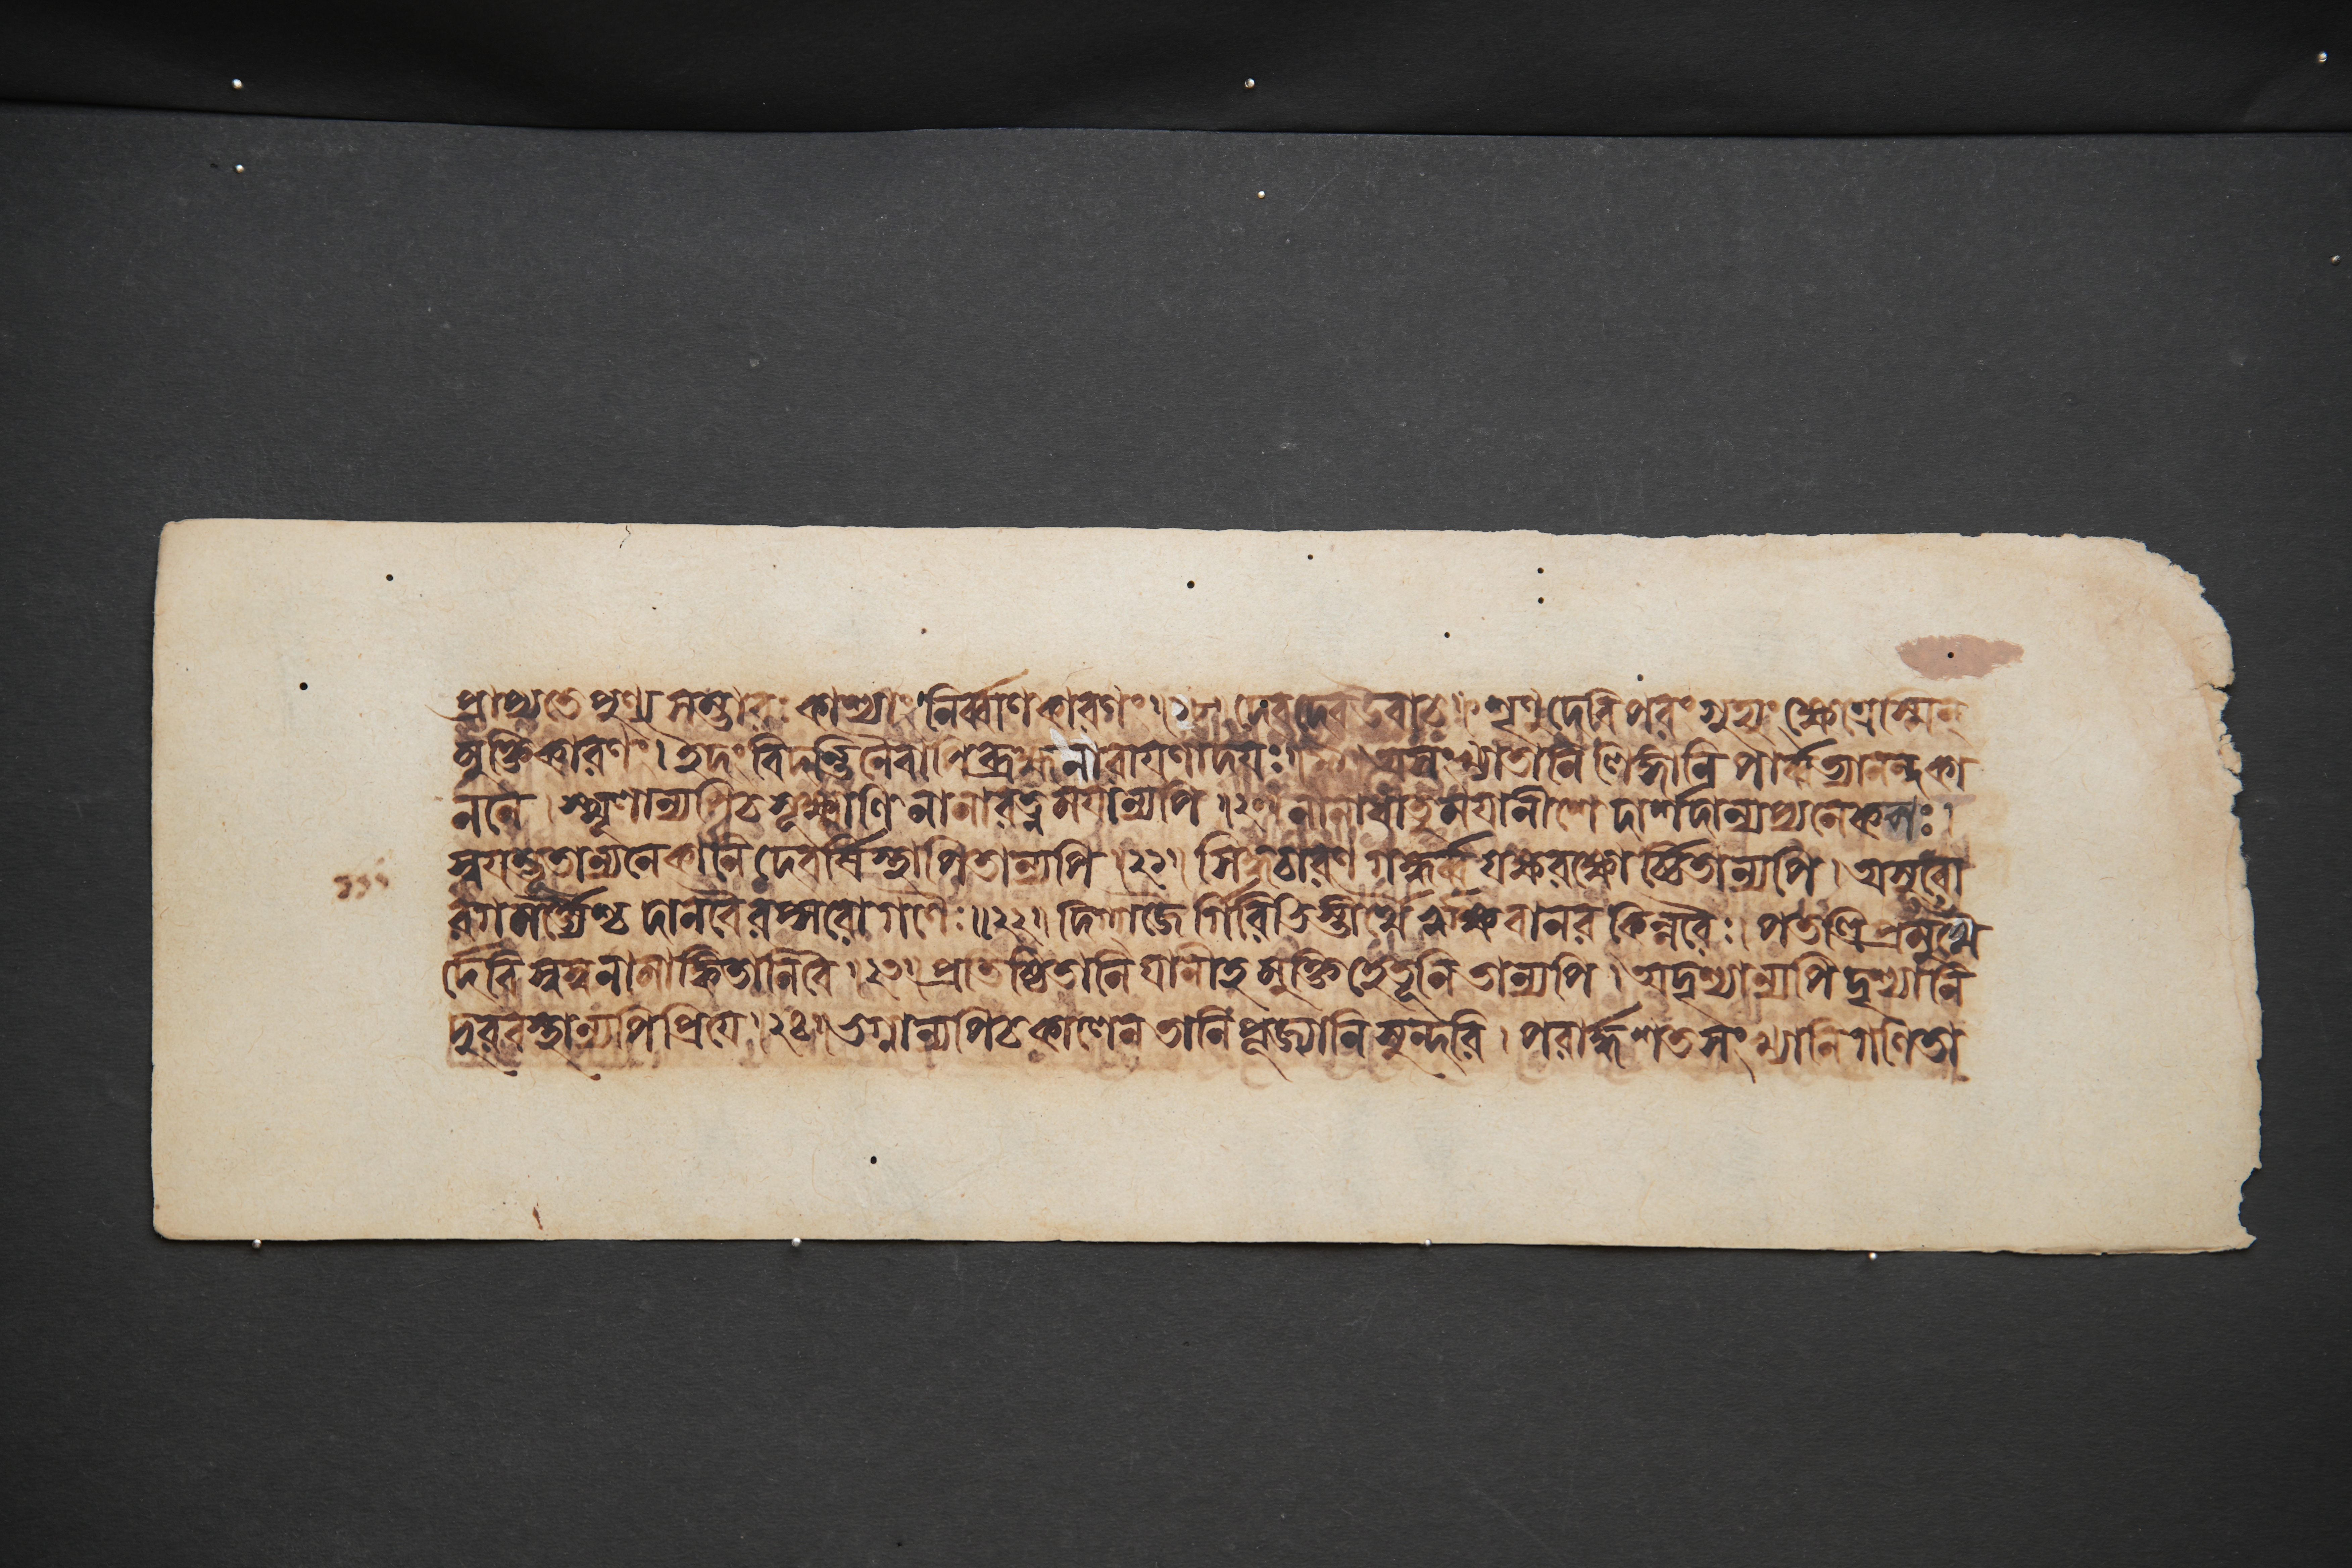 প্রাপ্যতে পুণ্য সম্ভারঃ কাশ্যাং নির্ব্বাণকারণং ।১৮। দেবদেব উবাচ ॥ শৃণু দেবি পরং গুহ্যং ক্ষেত্রেঽস্মিন্
মুক্তিকারণং । ইদং বিদন্তি নৈবাপি ব্রহ্মনারায়ণাদয়ঃ । অসংখ্যাতানি লিঙ্গানি পার্ব্বত্যানন্দকা
ননে । স্থূলান্যপিচ সূক্ষ্মাণি নানারত্নময়ান্যপি ।২০। নানাধাতুময়ানীশে দার্শদান্যপ্যনেকশঃ ।
স্বয়ম্ভূতান্যনেকানি দেবর্ষিস্থাপিতান্যপি ।২১। সিদ্ধচারণ গন্ধর্ব্ব যক্ষরক্ষোর্চ্চিতান্যপি । অসুরো
রগমর্ত্ত্যৈশ্চ দানবৈরপ্সরোগণৈঃ ॥২২। দিগ্গজৈর্গিরিভিস্তীর্থৈ ঋক্ষবানর কিন্নরৈঃ । পতত্রিপ্রমুখৈ
র্দেবি স্বস্বনামাঙ্কিতানি বৈ ।২৩। প্রতিষ্ঠিতানি যানীহ মুক্তিহেতূনি তান্যপি । অদৃশ্যান্যপি দৃশ্যানি
দুরবস্থান্যপি প্রিয়ে ।২৪। ভগ্নান্যপিচ কালেন তানি পূজ্যানি সুন্দরি । পরার্দ্ধশতসংখ্যানি গণিতা